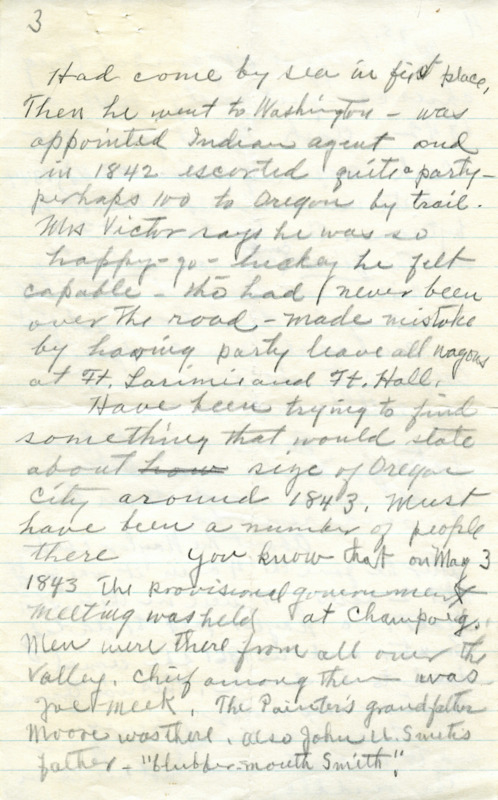 3
Had come by sea in first place,
Then he went to Washington - was
appointed Indian agent and
in 1842 escorted quite a party -
perhaps 100 to Oregon by trail.
Mrs Victor says he was so
happy-go-luckey he felt
capable - tho had never been
over the road - made mistake
by having party leave all wagons
at Ft. Larimie and Ft. Hall.
Have been trying to find
something that would state
about how size of Oregon
City around 1843. Must
have been a number of people
there you know that on May 3
1843 The provisional government
meeting was held at Champoeg.
Men were there from all over the
Valley. Chief among them was
Joe Meek. The Painter's grandfather
Moore was there. also John U. Smith's
father - "blubber-mouth Smith".